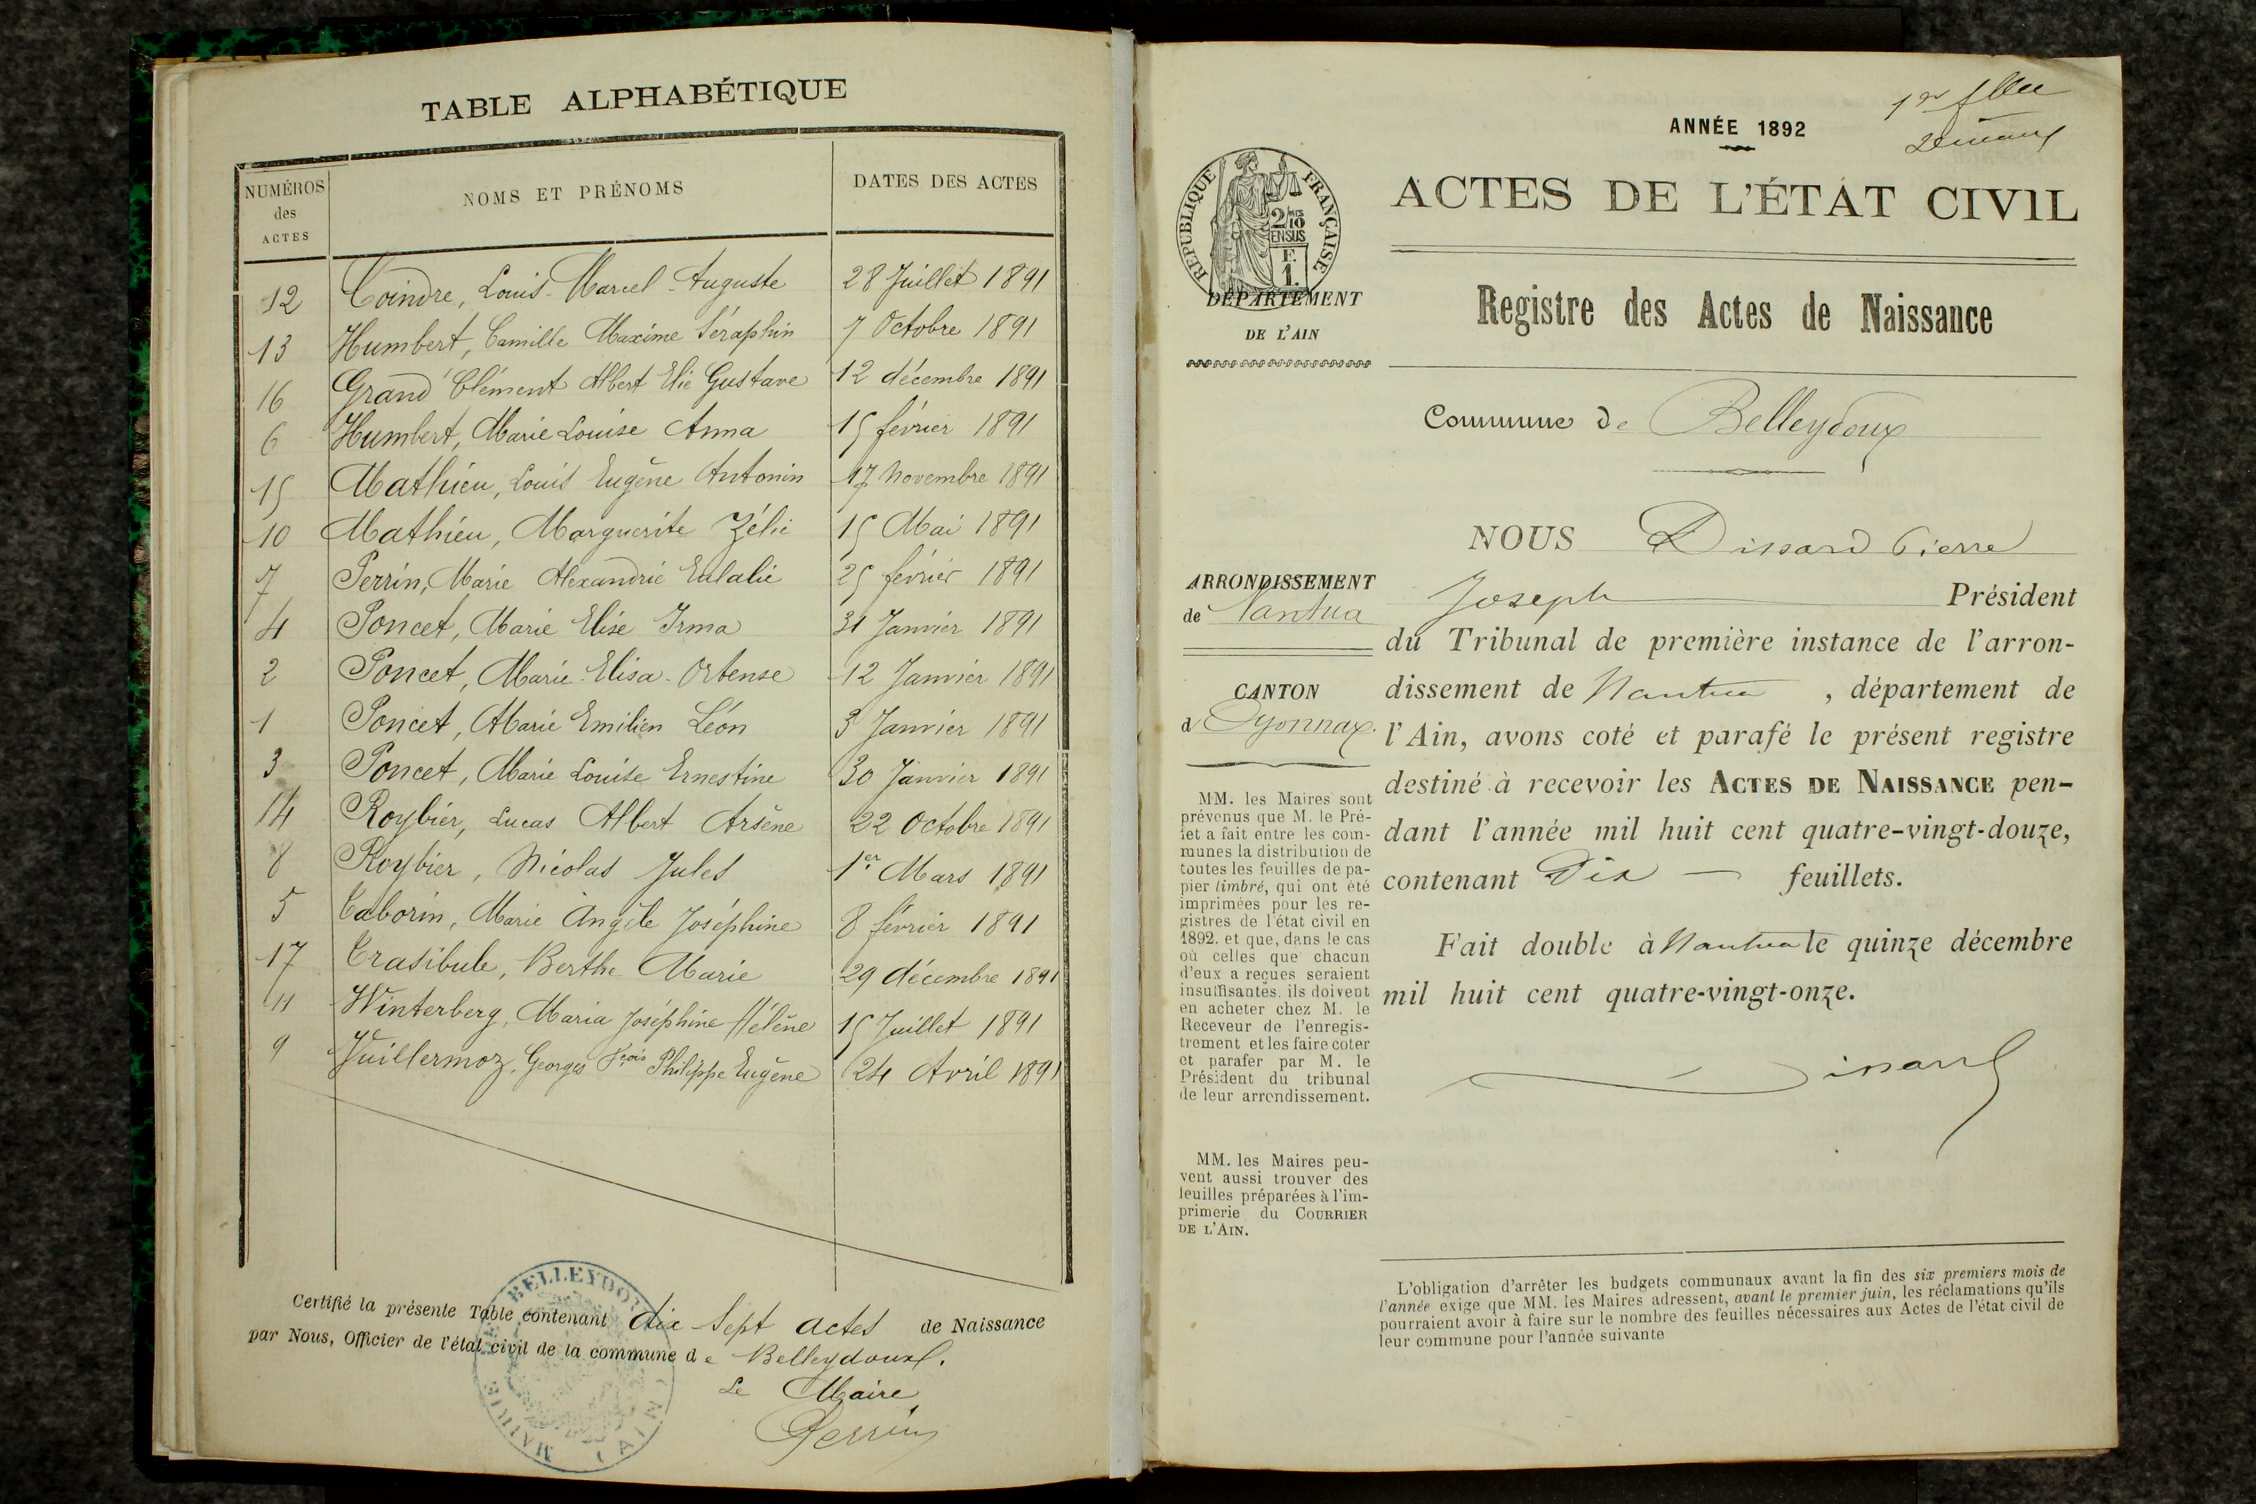 TABLE ALPHABÉTIQUE
NUMÉROS
des
ACTES
NOMS ET PRÉNOMS
DATES DES ACTES
12 Coindre, Louis-Marcel-Auguste 28 Juillet 1891
13 Humbert, Camille Maxime Séraphin 7 Octobre 1891
16 Grand Clément Albert Elie Gustave 12 décembre 1891
6 Humbert, Marie Louise Anna 15 février 1891
15 Mathieu, Louis Eugène Antonin 17 Novembre 1891
10 Mathieu, Marguerite Zélie 15 Mai 1891
7 Perrin, Marie Alexandrie Eulalie 25 février 1891
4 Poncet, Marie Elise Irma 31 Janvier 1891
2 Poncet, Marie-Elisa-Ortense 12 Janvier 1891
1 Poncet, Marie Emilien Léon 3 Janvier 1891
3 Poncet, Marie Louise Ernestine 30 Janvier 1891
14 Roybier, Lucas Albert Arsène 22 Octobre 1891
8 Roybier, Nicolas Jules 1er Mars 1891
5 Taborin, Marie Angèle Joséphine 8 février 1891
17 Trasibule, Berthe Marie 29 décembre 1891
11 Winterberg, Maria Joséphine Hélène 15 Juillet 1891
9 Vuillermoz, Georges Fçois Philippe Eugène 24 Avril 1891
Certifié la présente Table contenant dix-sept actes de Naissance
par Nous, Officier de l'état civil de la commune de Belleydoux.
Le Maire
Perrin
BELLEYDOUX
MAIRIE
(AIN)
ANNÉE 1892
ACTES DE L'ÉTAT CIVIL
RÉPUBLIQUE FRANÇAISE
2/10
EN SUS
F.
1.
DÉPARTEMENT
DE L'AIN
Registre des Actes de Naissance
Commune de Belleydoux
NOUS Dissard Pierre
Joseph Président
du Tribunal de première instance de l'arron-
dissement de Nantua, département de
l'Ain, avons coté et parafé le présent registre
destiné à recevoir les ACTES DE NAISSANCE pen-
dant l'année mil huit cent quatre-vingt-douze,
contenant Dix feuillets.
Fait double à Nantua le quinze décembre
mil huit cent quatre-vingt-onze.
Dissard
ARRONDISSEMENT
de Nantua
CANTON
d'Oyonnax.
MM. les Maires sont
prévenus que M. le Pré-
fet a fait entre les com-
munes la distribution de
toutes les feuilles de pa-
pier timbré, qui ont été
imprimées pour les re-
gistres de l'état civil en
1892. et que, dans le cas
où celles que chacun
d'eux a reçues seraient
insuffisantes. ils doivent
en acheter chez M. le
Receveur de l'enregis-
trement et les faire coter
et parafer par M. le
Président du tribunal
de leur arrondissement.
MM. les Maires peu-
vent aussi trouver des
feuilles préparées à l'im-
primerie du COURRIER
DE L'AIN.
L'obligation d'arrêter les budgets communaux avant la fin des six premiers mois de
l'année exige que MM. les Maires adressent, avant le premier juin, les réclamations qu'ils
pourraient avoir à faire sur le nombre des feuilles nécessaires aux Actes de l'état civil de
leur commune pour l'année suivante